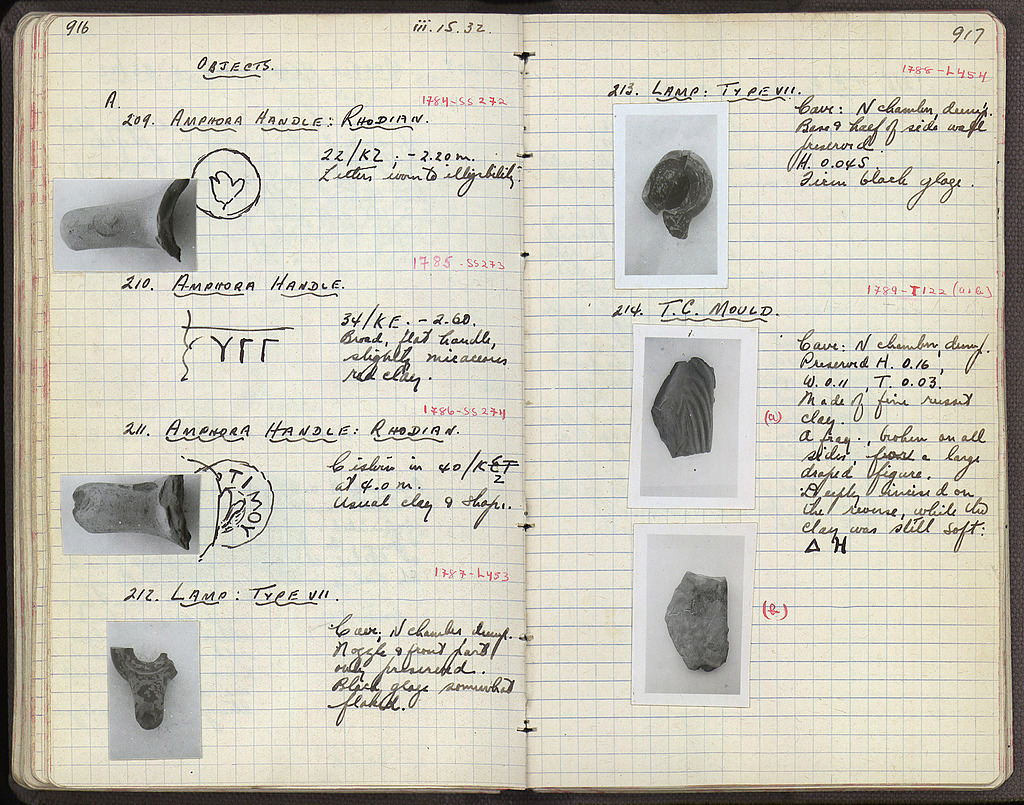 916
iii.15.32.
OBJECTS.
A.
1784-SS272
209. AMPHORA HANDLE: RHODIAN.
22/KZ; -2.20 m.
Letters worn to illegibility.
1785-SS273
210. AMPHORA HANDLE.
34/KE. -2.60.
Broad, flat handle,
slightly micaceous
red clay.
ΥΓΓ
1786-SS274
211. AMPHORA HANDLE: RHODIAN.
Cistern in 40/K
at 4.0 m.
Usual clay & shape.
ΤΙΜΟΥ
1787-L453
212. LAMP: TYPE VII.
Cave; N chamber dump.
Nozzle & front part
only preserved.
Black glaze somewhat
flaked.
917
1788-L454
213. LAMP: TYPE VII.
Cave: N chamber, dump.
Base & half of side wall
preserved.
H. 0.045
Firm black glaze.
1789-T122 (a+b)
214. T.C. MOULD.
Cave: N chamber, dump.
Preserved H. 0.16,
W. 0.11, T. 0.03.
Made of fine russet
clay.
(a)
A frag., broken on all
sides, a large
draped figure.
Deeply incised on
the reverse, while the
clay was still soft:
Δ Η
(b)